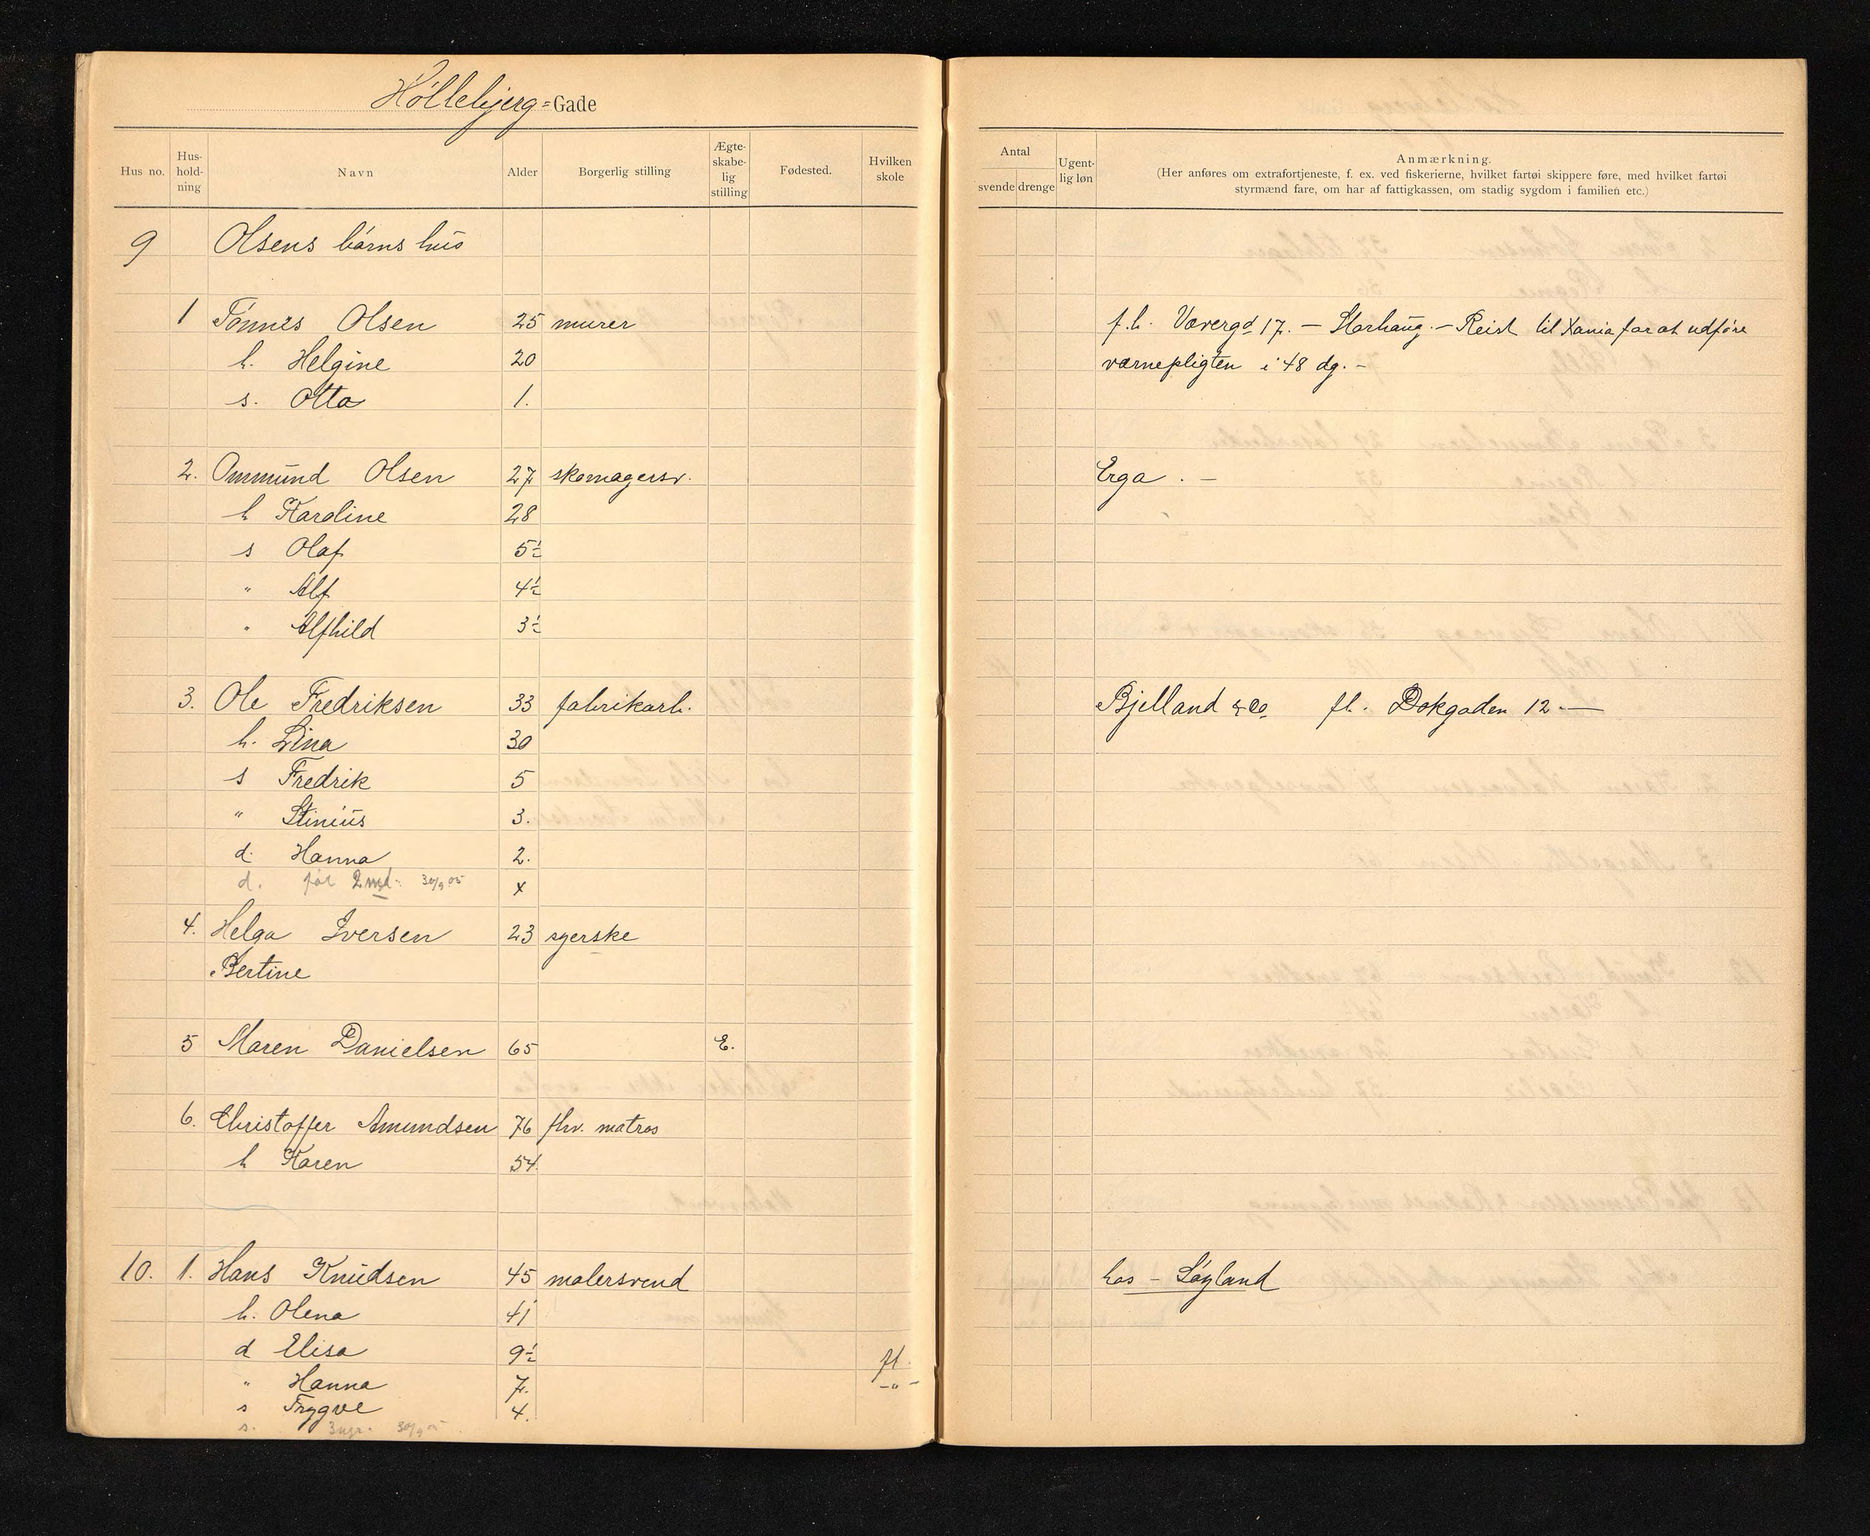 Höllebjerg=Gade
Hus no. Hus-hold-ning Navn Alder Borgerlig stilling Ægte-skabe-lig stilling Fødested. Hvilken skole
Antal svende drenge Ugent-lig løn Anmærkning.
(Her anføres om extrafortjeneste, f. ex. ved fiskerierne, hvilket fartøi skippere føre, med hvilket fartøi
styrmænd fare, om har af fattigkassen, om stadig sygdom i familien etc.)
9 Olsens börns hus
1 Tönnes Olsen 25 murer f.h. Værergd 17. — Storhaug. — Reist til Xania for at udföre
h. Helgine 20 værnepligten i 48 dg. —
s. Otto 1.
2. Ommund Olsen 27 skomagersv. Erga. —
h Karoline 28
s Olaf 5½
" Alf 4½
" Alfhild 3½
3. Ole Fredriksen 33 fabrikarb. Bjelland & Co fl. Dokgaden 12 —
h. Lina 30
s Fredrik 5
" Stinius 3.
d. Hanna 2.
d. för 2 md. 30/9 05 x
4. Helga Iversen 23 syerske
Bertine
5 Maren Danielsen 65 E.
6. Christoffer Amundsen 76 fhv. matros
h Karen 54.
10. 1. Hans Knudsen 45 malersvend hos — Löyland
h. Olena 41
d Elisa 9½ fl.
" Hanna 7. —"—
s Trygve 4.
s. 30/9 05